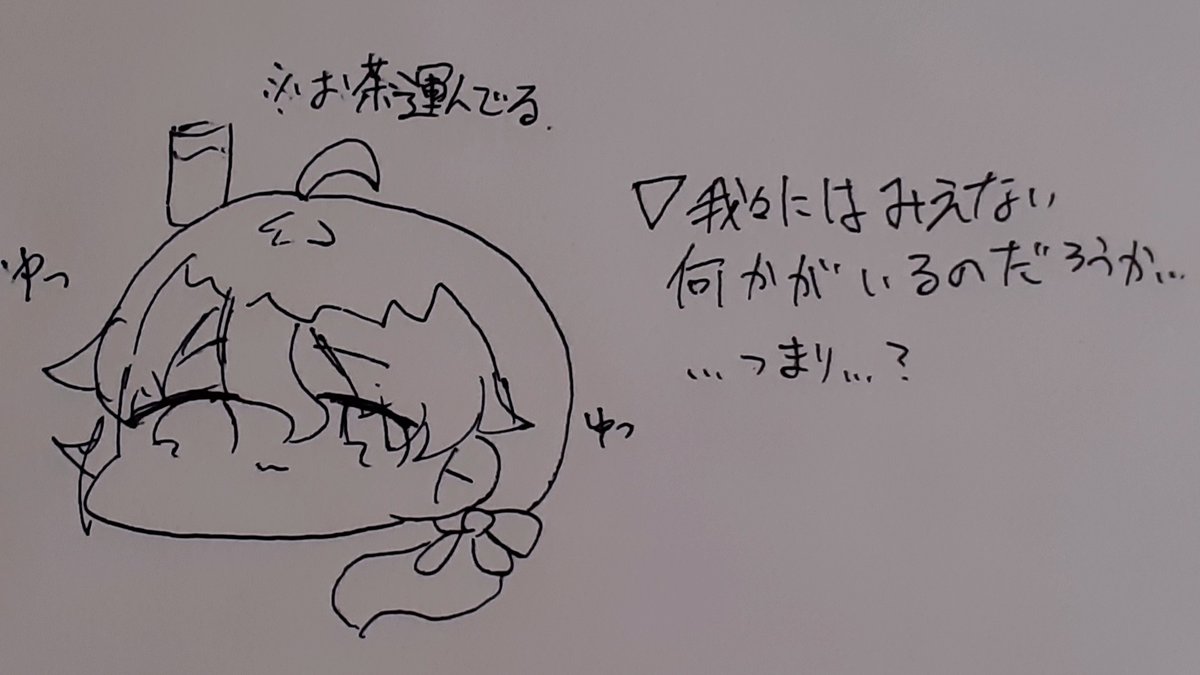 ※お茶運んでる.
ゆっ
▽我々にはみえない
何かがいるのだろうか…
…つまり…?
ゆっ